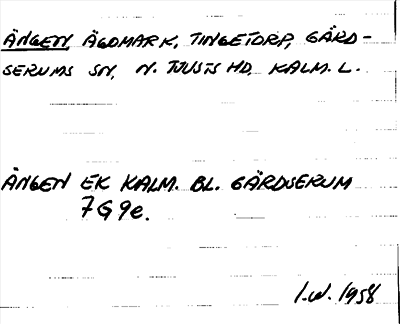 ÄNGEN, ÄGOMARK, TINGETORP, GÄRD-
SERUMS SN, N. TJUSTS HD, KALM. L.
ÄNGEN EK KALM. BL. GÄRDSERUM
7G9e.
I.W. 1958